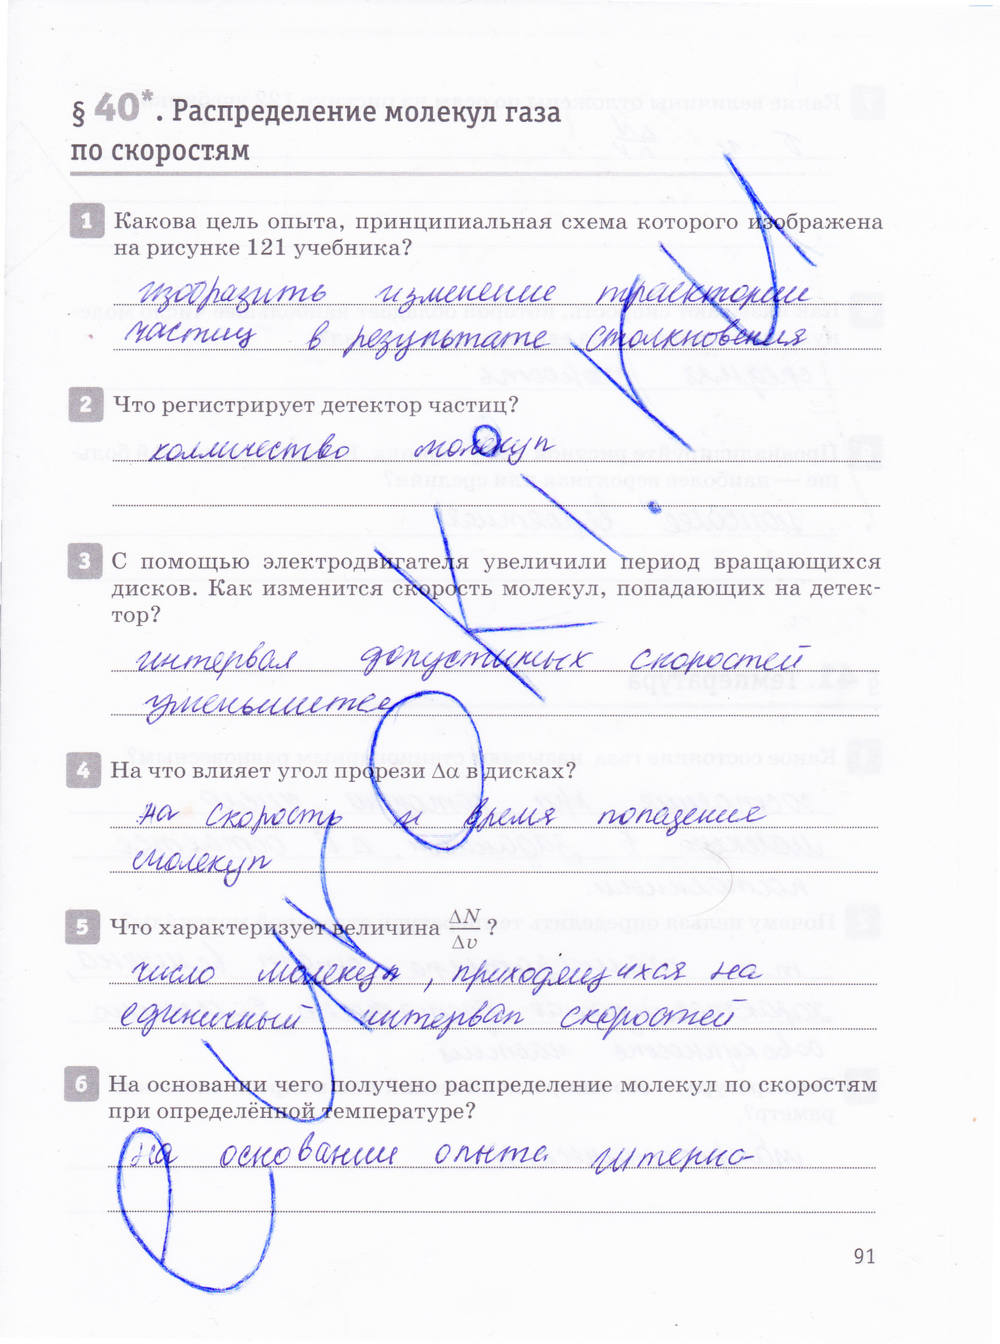 § 40*. Распределение молекул газа
по скоростям
1 Какова цель опыта, принципиальная схема которого изображена
на рисунке 121 учебника?
изобразить изменение траектории
частиц в результате столкновения
2 Что регистрирует детектор частиц?
колличество молекул
3 С помощью электродвигателя увеличили период вращающихся
дисков. Как изменится скорость молекул, попадающих на детек-
тор?
интервал допустимых скоростей
уменьшится
4 На что влияет угол прорези Δα в дисках?
на скорость и время попадение
молекул
5 Что характеризует величина ΔN/Δv?
число молекул, приходящихся на
единичный интервал скоростей
6 На основании чего получено распределение молекул по скоростям
при определённой температуре?
на основании опыта Штерна
91